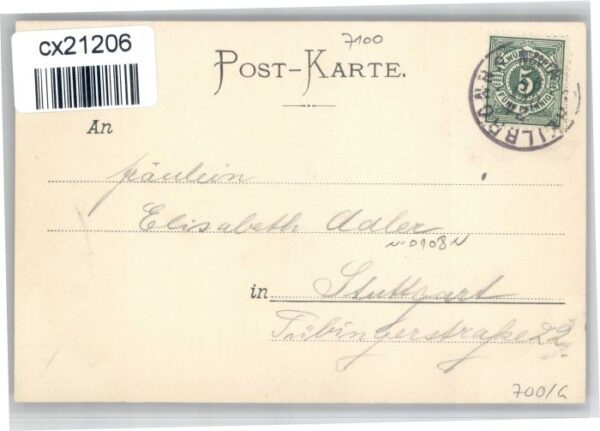 cx21206
7100
POST-KARTE.
K.WÜRTT. POST
5
FÜNF PFENNIG
HEILBRONN
An
Fräulein
Elisabeth Adler
N-0108N
in Stuttgart
Tübingerstraße 29
700/G